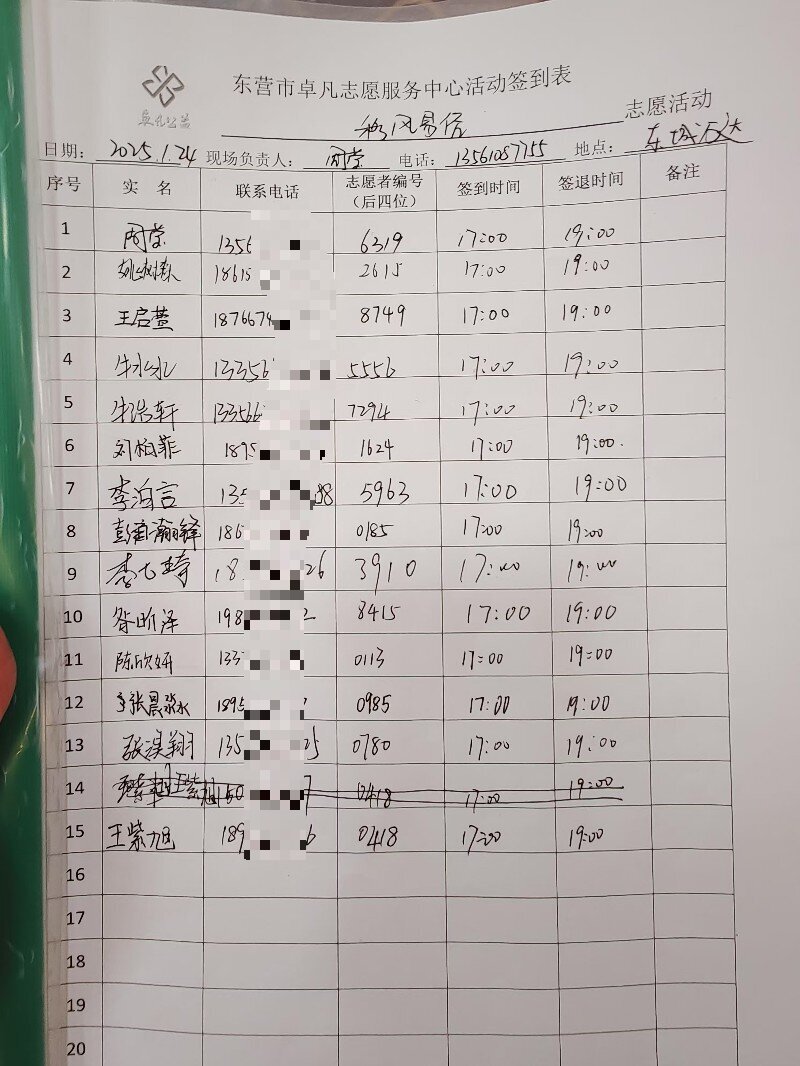 东营市卓凡志愿服务中心活动签到表
卓凡公益
移风易俗 志愿活动
日期： 2025.1.24 现场负责人： 闫荣 电话： 13561087755 地点： 东城万达
序号 实 名 联系电话 志愿者编号（后四位） 签到时间 签退时间 备注
1 闫荣 1356 6319 17:00 19:00
2 18615 2615 17:00 19:00
3 王启萱 1876674 8749 17:00 19:00
4 牛冰冰 13356 5556 17:00 19:00
5 牛浩轩 133566 7294 17:00 19:00
6 刘柏菲 1895 1624 17:00 19:00.
7 李泊言 135 88 5963 17:00 19:00
8 186 0185 17:00 19:00
9 18 26 3910 17:00 19:00
10 昝昕泽 198 2 8415 17:00 19:00
11 陈欣妍 133 0113 17:00 19:00
12 张晨淼 1895 0985 17:00 19:00
13 张淏翔 135 25 0780 17:00 19:00
14 150 7 0418 17:00 19:00
15 王紫旭 189 6 0418 17:00 19:00
16
17
18
19
20